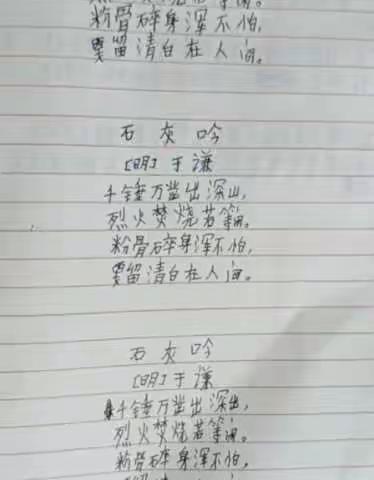 烈火焚烧若等闲。
粉骨碎身浑不怕,
要留清白在人间。
石灰吟
[明]于谦
千锤万凿出深山,
烈火焚烧若等闲。
粉骨碎身浑不怕,
要留清白在人间。
石灰吟
[明]于谦
千锤万凿出深山,
烈火焚烧若等闲。
粉骨碎身浑不怕,